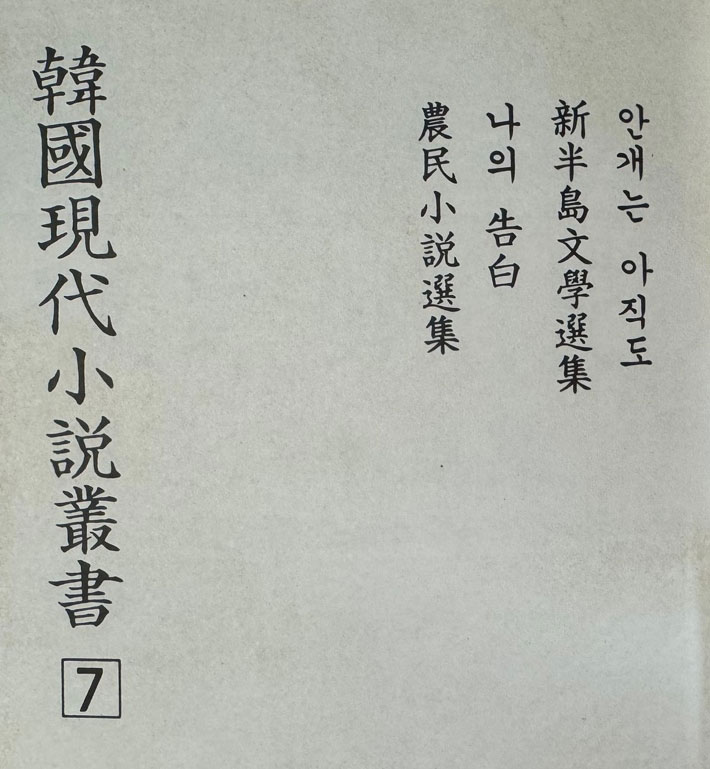 안개는 아직도
新半島文學選集
나의 告白
農民小說選集
韓國現代小說叢書
7